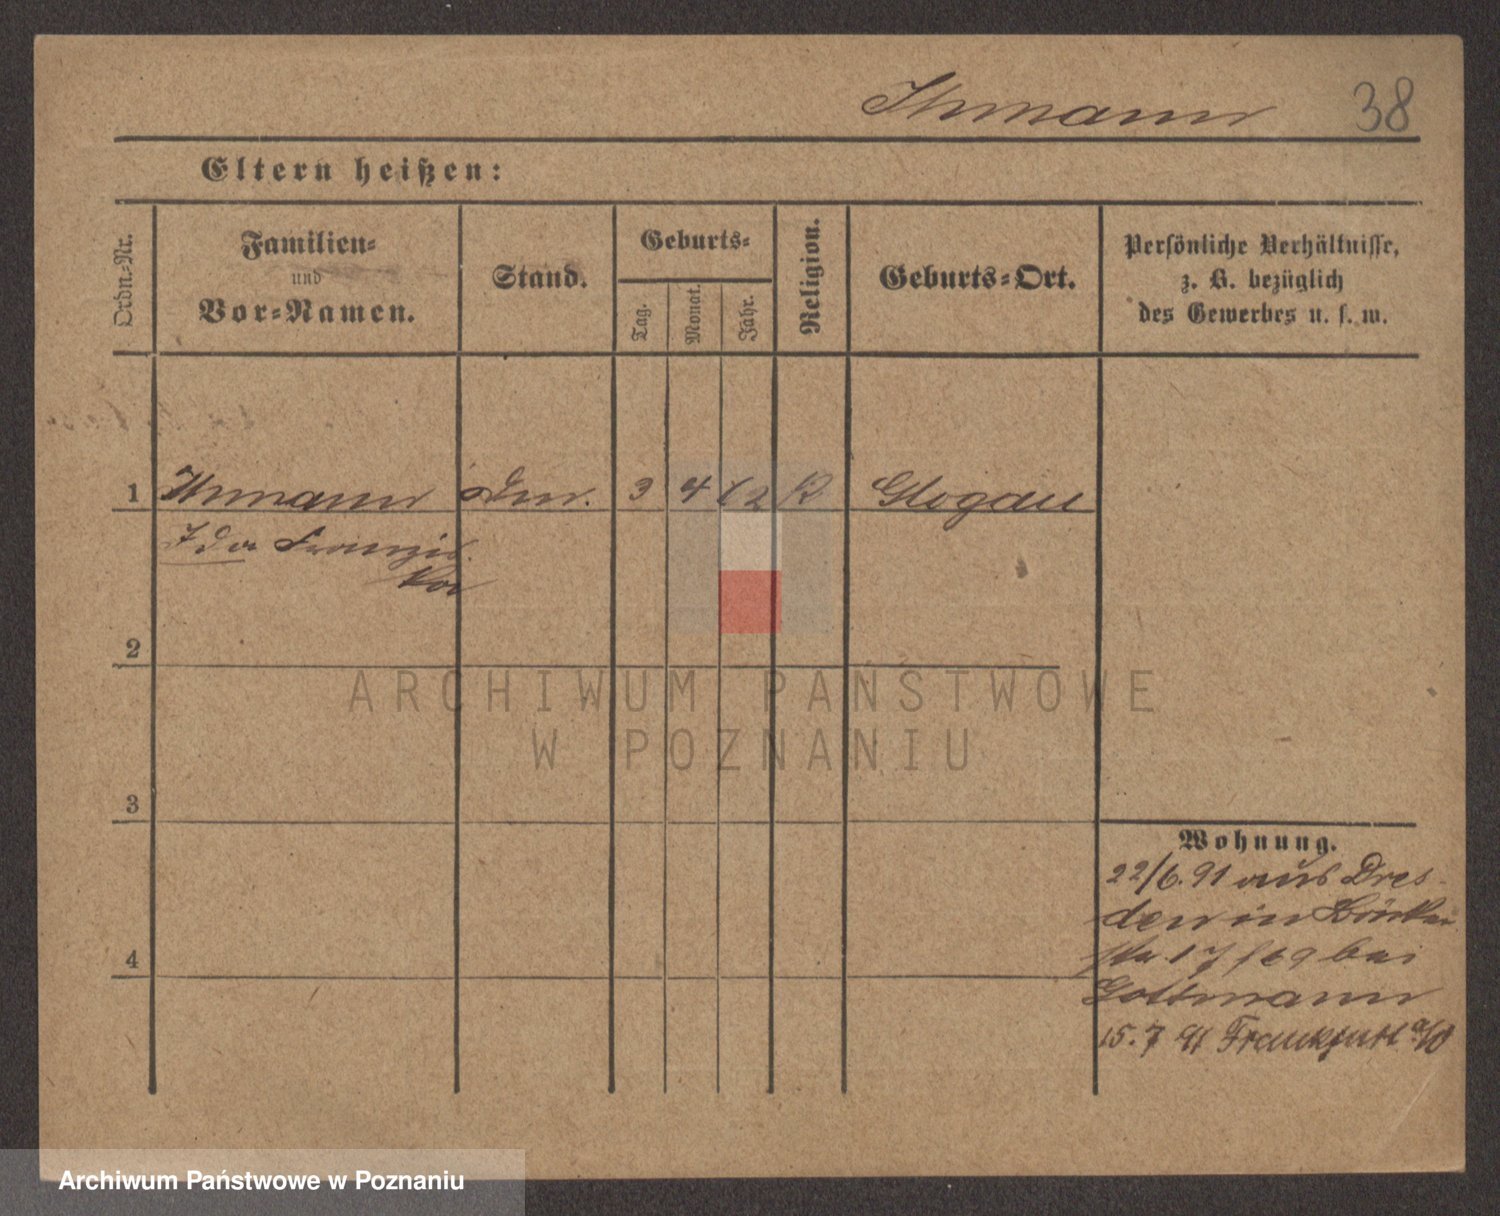 Ihmann 38
Eltern heißen:
Ordn.-Nr.
Familien-
und
Vor-Namen.
Stand.
Geburts-
Tag.
Monat.
Jahr.
Religion.
Geburts-Ort.
Persönliche Verhältnisse,
z. B. bezüglich
des Gewerbes u. s. w.
1 Ihmann 3 4 62 K Glogau
Ida Franzis
ka
2
ARCHIWUM PAŃSTWOWE
W POZNANIU
3
4
Wohnung.
22/6.91 aus Dres-
den in
17 bei
Gottmann
15.7 91 Frankfurt a/O
Archiwum Państwowe w Poznaniu